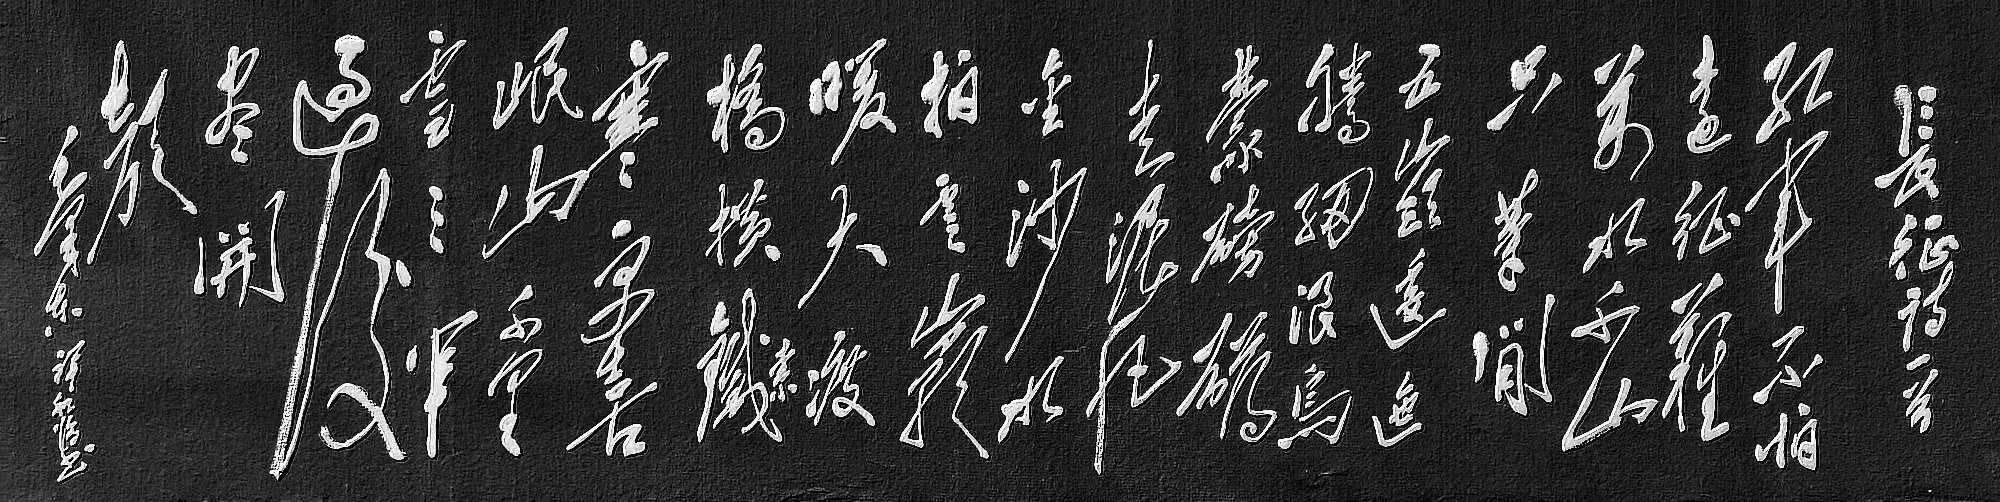 長征詩一首
紅軍不怕
遠征難
萬水千山
只等閒
五嶺逶迤
騰細浪烏
蒙磅礴
走泥丸
金沙水
拍雲
暖大渡
橋橫鐵索
寒更喜
岷山千里
雪三軍
過後
盡開
顏
毛澤東